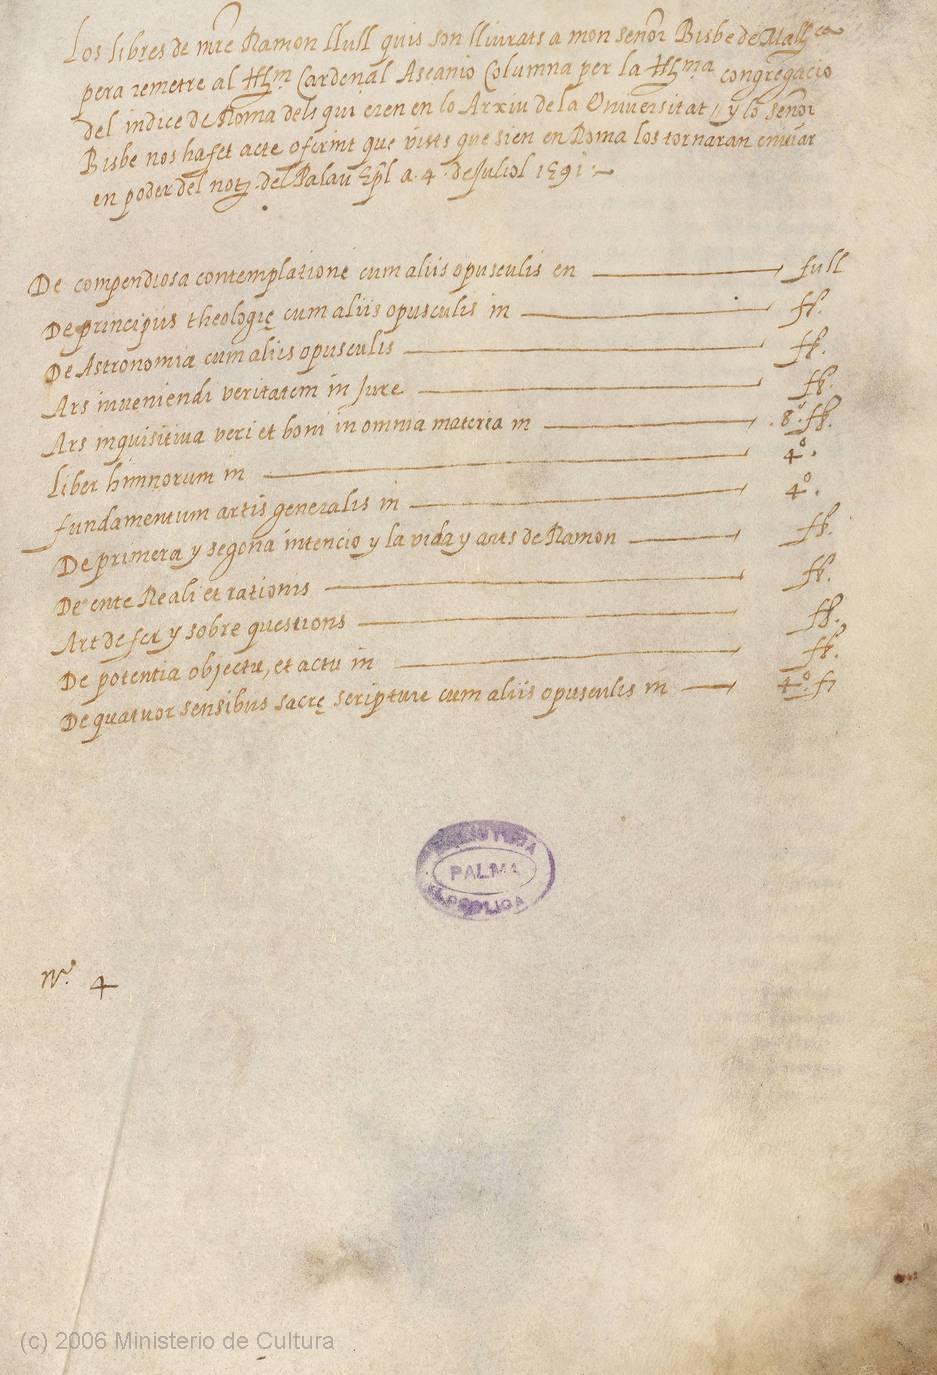 Los libres de mre Ramon llull quis son lliurats a mon señor Bisbe de Mallca
pera remetre al Illm Cardenal Ascanio Columna per la Illma congregacio
del indice de Roma dels qui eren en lo Arxiu de la Universitat, y lo señor
Bisbe nos ha fet acte oferint que vists que sien en Roma los tornaran enviar
en poder del not. del Palau Epl a 4 de Juliol 1591
De compendiosa contemplatione cum aliis opusculis en full
De principiis theologię cum aliis opusculis in fl.
De Astronomia cum aliis opusculis fl.
Ars inveniendi veritatem in Jure fl.
Ars inquisitiva veri et boni in omnia materia in .8º. fl.
Liber himnorum in 4º.
fundamentum artis generalis in 4º.
De primera y segona intencio y la vida y arts de Ramon fl.
De ente Reali et rationis fl.
Art de fer y sobre questions fl.
De potentia objectu, et actu in fl.
De quatuor sensibus sacrę scripture cum aliis opusculis in 4º. f
PALMA
PUBLICA
Nº. 4
(c) 2006 Ministerio de Cultura